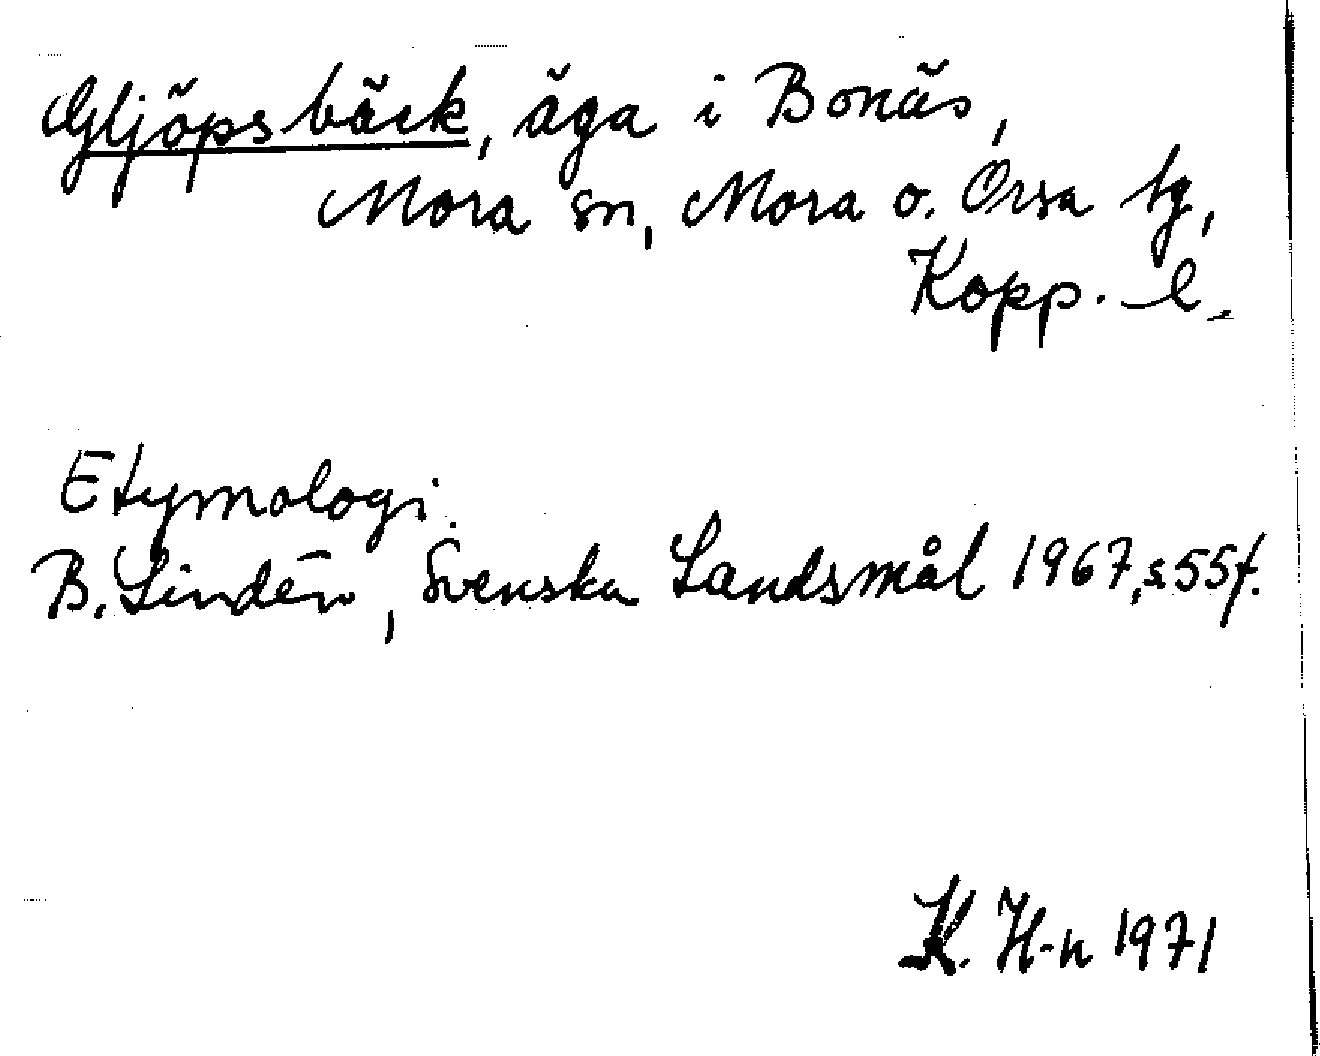 Gljöpsbäck, äga i Bonäs,
Mora sn, Mora o. Orsa tg,
Kopp. l.
Etymologi.
B. Lindén, Svenska Landsmål 1967, s 55f.
K. H-n 1971